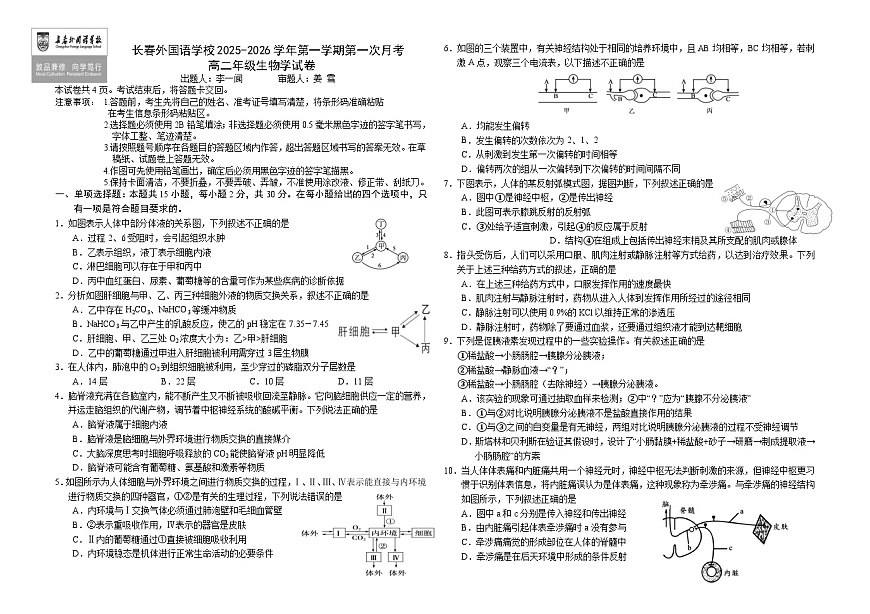 长春外国语学校
Changchun Foreign Languages School
敦品兼修 向学笃行
长春外国语学校 2025-2026 学年第一学期第一次月考
高二年级生物学试卷
出题人：李一闻 审题人：姜 雪
本试卷共 4 页。考试结束后，将答题卡交回。
注意事项： 1.答题前，考生先将自己的姓名、准考证号填写清楚，将条形码准确粘贴
在考生信息条形码粘贴区。
2.选择题必须使用 2B 铅笔填涂；非选择题必须使用 0.5 毫米黑色字迹的签字笔书写，
字体工整、笔迹清楚。
3.请按照题号顺序在各题目的答题区域内作答，超出答题区域书写的答案无效。在草
稿纸、试题卷上答题无效。
4.作图可先使用铅笔画出，确定后必须用黑色字迹的签字笔描黑。
5.保持卡面清洁，不要折叠，不要弄破、弄皱，不准使用涂改液、修正带、刮纸刀。
一、单项选择题：本题共 15 小题，每小题 2 分，共 30 分。在每小题给出的四个选项中，只
有一项是符合题目要求的。
1．如图表示人体中部分体液的关系图，下列叙述不正确的是
A．过程 2、6 受阻时，会引起组织水肿
B．乙表示组织，液丁表示细胞内液
C．淋巴细胞可以存在于甲和丙中
D．丙中血红蛋白、尿素、葡萄糖等的含量可作为某些疾病的诊断依据
丁
3 4
甲
乙
丙
1 2 5
6
2．分析如图肝细胞与甲、乙、丙三种细胞外液的物质交换关系，叙述不正确的是
A．乙中存在 H₂CO₃、NaHCO₃等缓冲物质
B．NaHCO₃与乙中产生的乳酸反应，使乙的 pH 稳定在 7.35－7.45
C．肝细胞、甲、乙三处 O₂浓度大小为：乙>甲>肝细胞
D．乙中的葡萄糖通过甲进入肝细胞被利用需穿过 3 层生物膜
肝细胞
甲
乙
丙
3．在人体内，肺泡中的 O₂到组织细胞被利用，至少穿过的磷脂双分子层数是
A．14 层 B．22 层 C．10 层 D．11 层
4．脑脊液充满在各脑室内，能不断产生又不断被吸收回流至静脉。它向脑细胞供应一定的营养，
并运走脑组织的代谢产物，调节着中枢神经系统的酸碱平衡。下列说法正确的是
A．脑脊液属于细胞内液
B．脑脊液是脑细胞与外界环境进行物质交换的直接媒介
C．大脑深度思考时细胞呼吸释放的 CO₂能使脑脊液 pH 明显降低
D．脑脊液可能含有葡萄糖、氨基酸和激素等物质
5．如图所示为人体细胞与外界环境之间进行物质交换的过程，Ⅰ、Ⅱ、Ⅲ、Ⅳ表示能直接与内环境
进行物质交换的四种器官，①②是有关的生理过程，下列说法错误的是
A．内环境与Ⅰ交换气体必须通过肺泡壁和毛细血管壁
B．②表示重吸收作用，Ⅳ表示的器官是皮肤
C．Ⅱ内的葡萄糖通过①直接被细胞吸收利用
D．内环境稳态是机体进行正常生命活动的必要条件
体外
Ⅱ
①
体外 Ⅰ O₂ CO₂ 内环境 细胞
②
Ⅲ Ⅳ
体外 体外
6．如图的三个装置中，有关神经结构处于相同的培养环境中，且 AB 均相等，BC 均相等，若刺
激 A 点，观察三个电流表，以下描述不正确的是
A B C A B C A B C
甲 乙 丙
A．均能发生偏转
B．发生偏转的次数依次为 2、1、2
C．从刺激到发生第一次偏转的时间相等
D．偏转两次的组从一次偏转到下次偏转的时间间隔不同
7．下图表示，人体的某反射弧模式图，据图判断，下列叙述正确的是
A．图中①是神经中枢，②是传出神经
B．此图可表示膝跳反射的反射弧
C．③处给予适宜刺激，引起④的反应属于反射
D．结构④在组成上包括传出神经末梢及其所支配的肌肉或腺体
8．指头受伤后，人们可以采用口服、肌肉注射或静脉注射等方式给药，以达到治疗效果。下列
关于上述三种给药方式的叙述，正确的是
A．在上述三种给药方式中，口服发挥作用的速度最快
B．肌肉注射与静脉注射时，药物从进入人体到发挥作用所经过的途径相同
C．静脉注射可以使用 0.9%的 KCl 以维持正常的渗透压
D．静脉注射时，药物除了要通过血浆，还要通过组织液才能到达靶细胞
9．下列是促胰液素发现过程中的一些实验操作。有关叙述正确的是
①稀盐酸→小肠肠腔→胰腺分泌胰液；
②稀盐酸→静脉血液→“？”；
③稀盐酸→小肠肠腔（去除神经）→胰腺分泌胰液。
A．该实验的现象可通过抽取血样来检测；②中“？”应为“胰腺不分泌胰液”
B．①与②对比说明胰腺分泌胰液不是盐酸直接作用的结果
C．①与③之间的自变量是有无神经，两组对比说明胰腺分泌胰液的过程不受神经调节
D．斯塔林和贝利斯在验证其假设时，设计了“小肠黏膜+稀盐酸+砂子→研磨→制成提取液→
小肠肠腔”的方案
10．当人体体表痛和内脏痛共用一个神经元时，神经中枢无法判断刺激的来源，但神经中枢更习
惯于识别体表信息，将内脏痛误认为是体表痛，这种现象称为牵涉痛。与牵涉痛的神经结构
如图所示，下列叙述正确的是
A．图中 a 和 c 分别是传入神经和传出神经
B．由内脏痛引起体表牵涉痛时 a 没有参与
C．牵涉痛痛觉的形成部位在人体的脊髓中
D．牵涉痛是在后天环境中形成的条件反射
脑
脊髓
a
皮肤
b
c
内脏